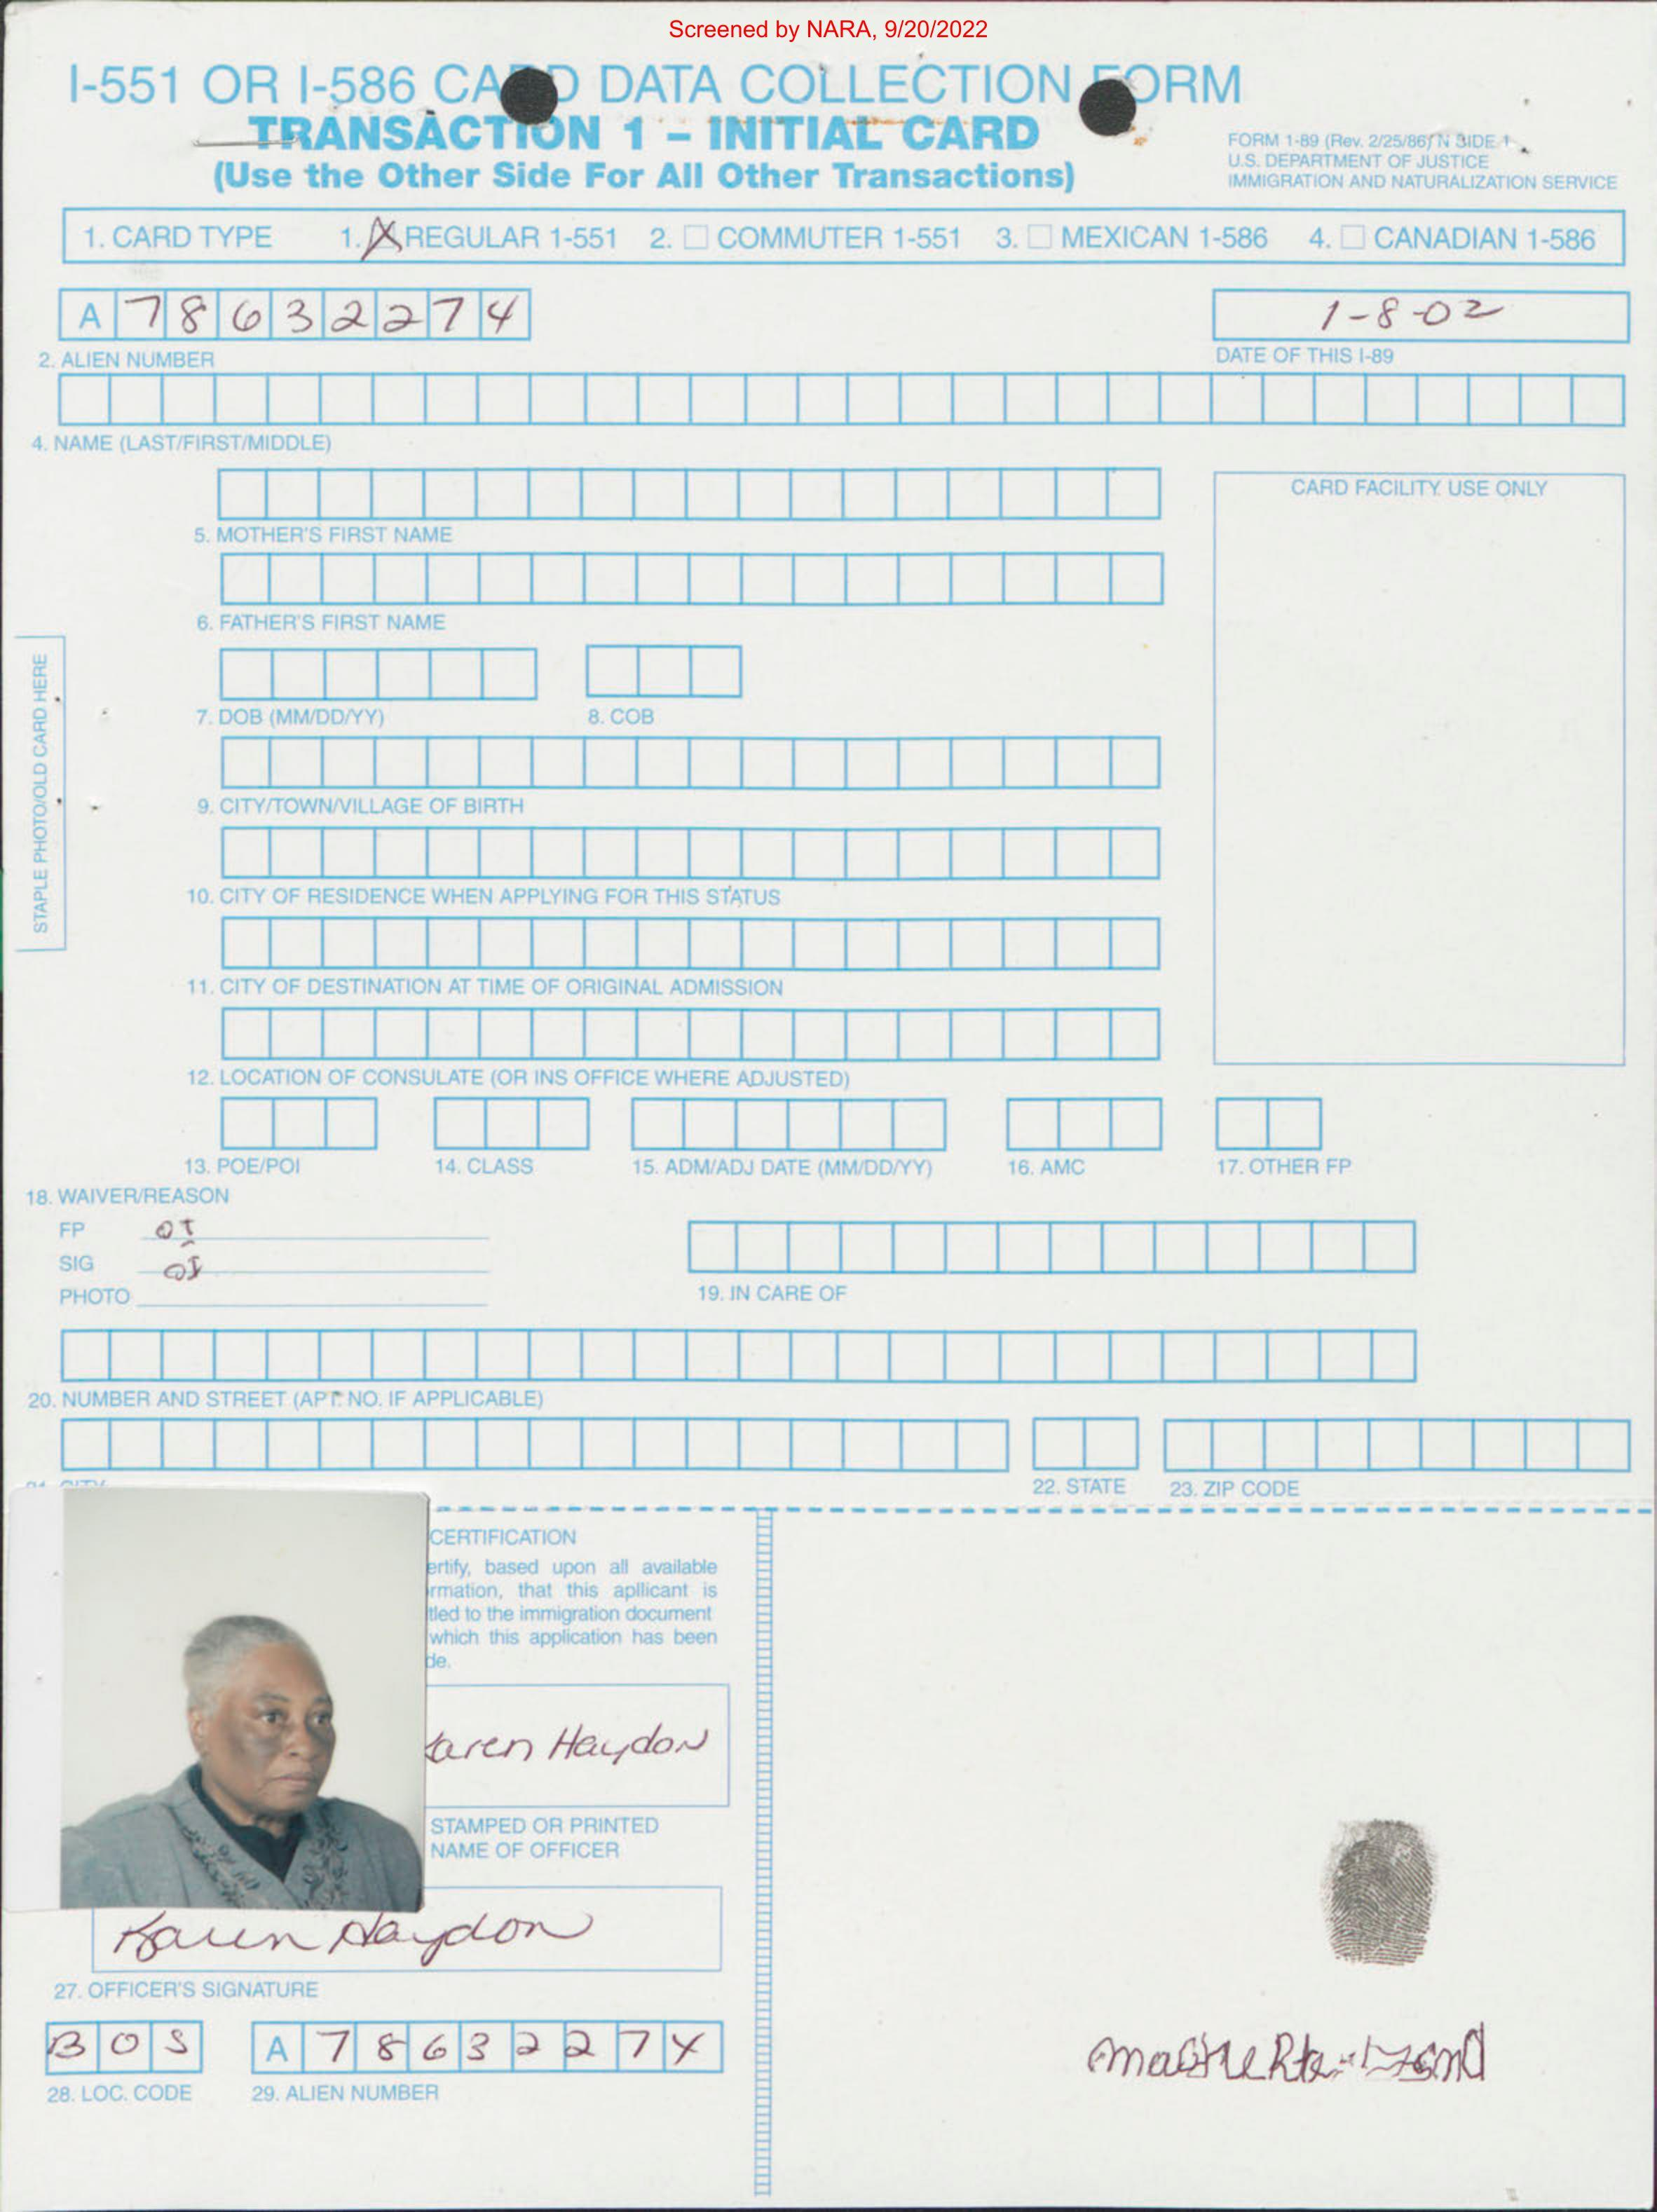 Screened by NARA, 9/20/2022
I-551 OR I-586 CARD DATA COLLECTION FORM
TRANSACTION 1 – INITIAL CARD
(Use the Other Side For All Other Transactions)
FORM 1-89 (Rev. 2/25/86) N SIDE 1
U.S. DEPARTMENT OF JUSTICE
IMMIGRATION AND NATURALIZATION SERVICE
1. CARD TYPE 1. X REGULAR 1-551 2. COMMUTER 1-551 3. MEXICAN 1-586 4. CANADIAN 1-586
A 78632274
1-8-02
2. ALIEN NUMBER
DATE OF THIS I-89
4. NAME (LAST/FIRST/MIDDLE)
CARD FACILITY USE ONLY
5. MOTHER'S FIRST NAME
6. FATHER'S FIRST NAME
STAPLE PHOTO/OLD CARD HERE
7. DOB (MM/DD/YY) 8. COB
9. CITY/TOWN/VILLAGE OF BIRTH
10. CITY OF RESIDENCE WHEN APPLYING FOR THIS STATUS
11. CITY OF DESTINATION AT TIME OF ORIGINAL ADMISSION
12. LOCATION OF CONSULATE (OR INS OFFICE WHERE ADJUSTED)
13. POE/POI 14. CLASS 15. ADM/ADJ DATE (MM/DD/YY) 16. AMC 17. OTHER FP
18. WAIVER/REASON
FP
SIG
PHOTO
19. IN CARE OF
20. NUMBER AND STREET (APT. NO. IF APPLICABLE)
22. STATE 23. ZIP CODE
CERTIFICATION
ertify, based upon all available
rmation, that this apllicant is
tled to the immigration document
which this application has been
de.
Karen Haydon
STAMPED OR PRINTED
NAME OF OFFICER
Karen Haydon
27. OFFICER'S SIGNATURE
BOS A 78632274
28. LOC. CODE 29. ALIEN NUMBER